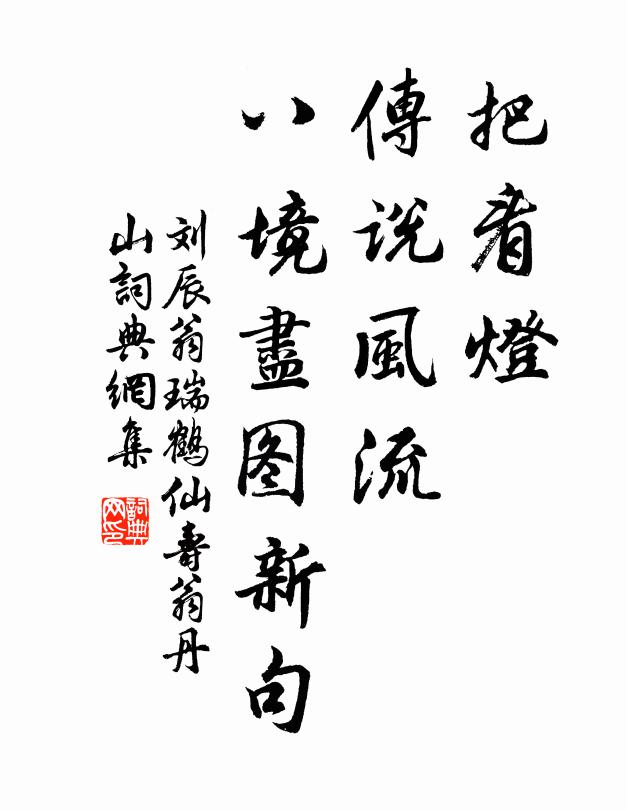 把看燈
傳说風流
八境盡图新句
刘辰翁瑞鹤仙壽翁丹
山詞典網集
詞典
网印